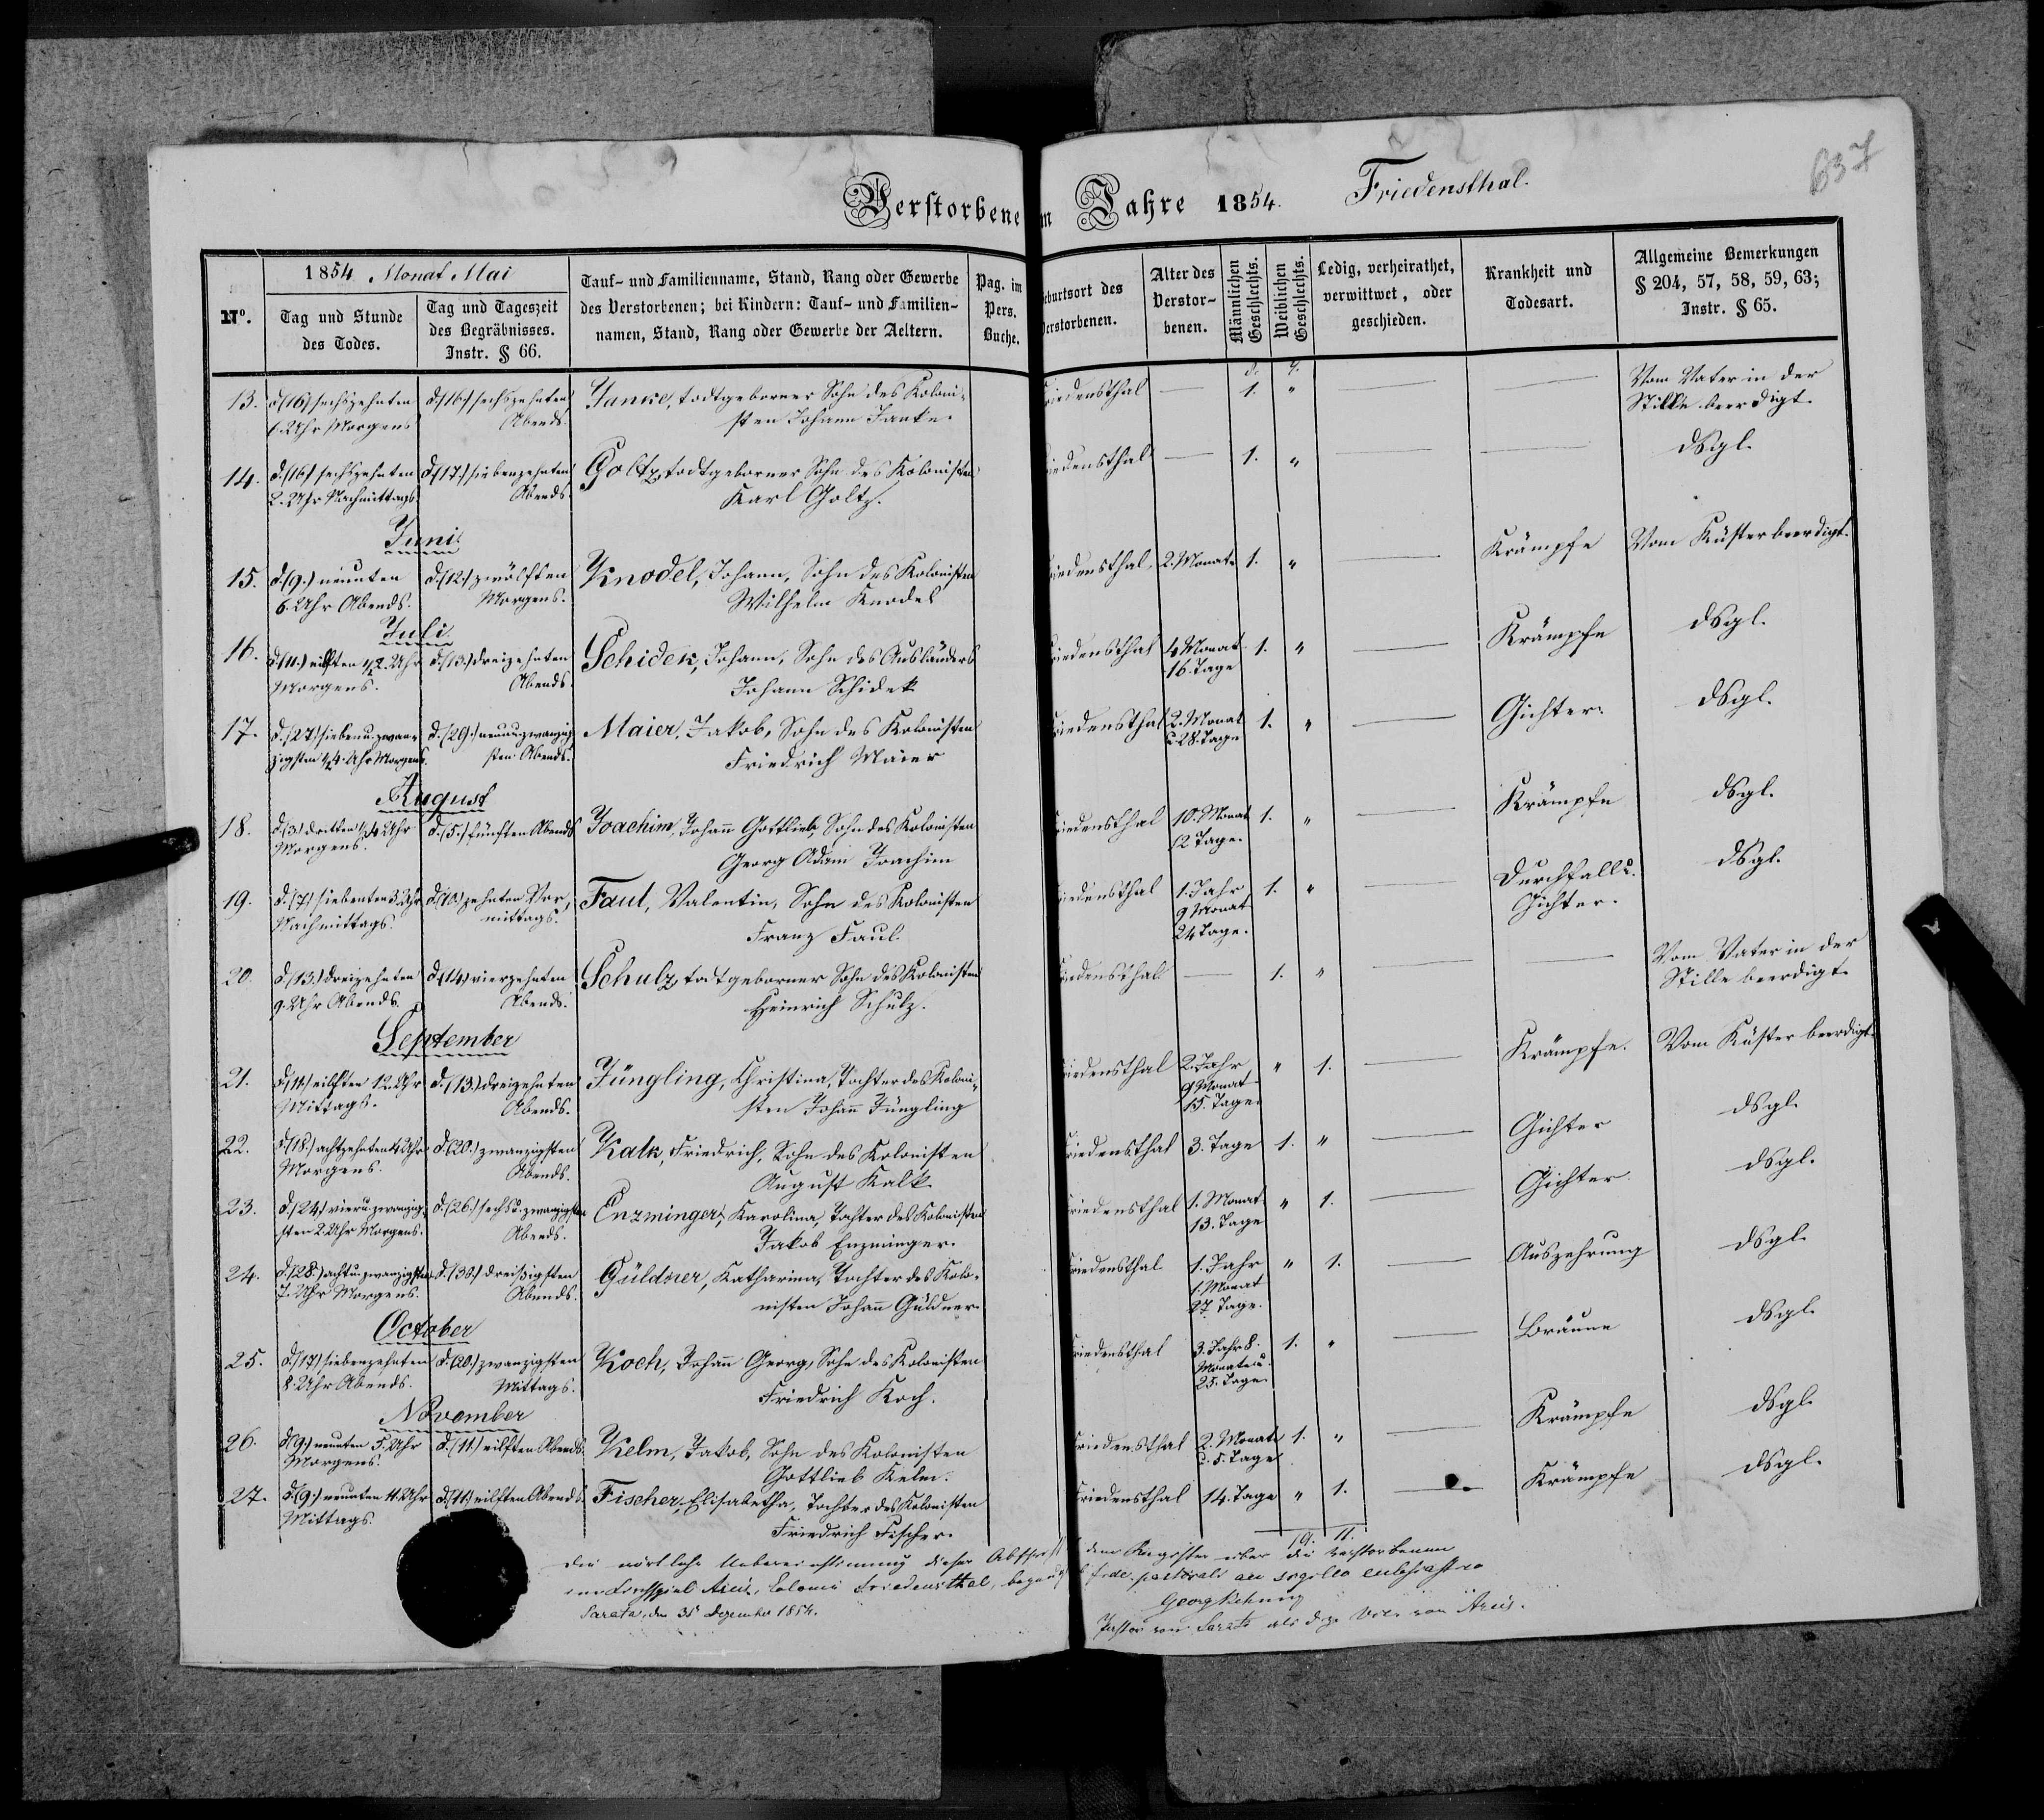 637
Verstorbene im Jahre 1854. Friedensthal.
1854 Monat Mai
No.
Tag und Stunde
des Todes.
Tag und Tageszeit
des Begräbnisses.
Instr. § 66.
Tauf- und Familienname, Stand, Rang oder Gewerbe
des Verstorbenen; bei Kindern: Tauf- und Familien-
namen, Stand, Rang oder Gewerbe der Aeltern.
Pag. im
Pers.
Buche.
eburtsort des
Verstorbenen.
Alter des
Verstor-
benen.
Männlichen
Geschlechts.
Weiblichen
Geschlechts.
Ledig, verheirathet,
verwittwet, oder
geschieden.
Krankheit und
Todesart.
Allgemeine Bemerkungen
§ 204, 57, 58, 59, 63;
Instr. § 65.
13. d. (16) sechszehnten d. (16) sechszehnten Janke, todtgeborner Sohn des Koloni- riedensthal — 1. " — — Vom Vater in der
6. Uhr Morgens Abends. sten Johann Janke. Stille beerdigt.
14. d. (16) sechszehnten d. (17.) siebenzehnten Goltz, todtgeborner Sohn des Kolonisten iedensthal — 1. " — — dsgl.
2. Uhr Nachmittags Abends. Karl Goltz.
Juni
15. d. (9.) neunten d. (12.) zwölften Knodel, Johann, Sohn des Kolonisten iedensthal, 2. Monate 1. " — Krämpfe Vom Küster beerdigt.
6. Uhr Abends. Morgens. Wilhelm Knodel
Juli
16. d. (11.) eilften 1/2 2. Uhr d. (13.) dreizehnten Schidek, Johann, Sohn des Ausländers riedensthal 4 Monat 1. " — Krämpfe dsgl.
Morgens. Abends. Johann Schidek 16. Tage
17. d. (27.) siebenu.zwan- d. (29.) neunu.zwanzig- Maier, Jakob, Sohn des Kolonisten riedensthal 2. Monat 1. " — Gichter. dsgl.
zigsten 1/2 4. Uhr Morgens. sten Abends. Friedrich Maier u. 28. Tage
August
18. d. (3.) dritten 1/2 4 Uhr d. (5.) fünften Abends Joachim, Johann Gottlieb, Sohn des Kolonisten riedensthal 10. Monat 1. " — Krämpfe dsgl.
Morgens. Georg Adam Joachim 12 Tage.
19. d. (7.) siebenten 3. Uhr d. (10) zehnten Vor- Faul, Valentin, Sohn des Kolonisten iedensthal 1. Jahr 1. " — Durchfall u. dsgl.
Nachmittags. mittags. Franz Faul. 9 Monat Gichter.
24 Tage.
20. d. (13.) dreizehnten d. (14) vierzehnten Schulz, todtgeborner Sohn des Kolonisten iedensthal — 1. " — — Vom Vater in der
9. Uhr Abends. Abends. Heinrich Schulz. Stille beerdigt.
September
21. d. (11.) eilften 12. Uhr d. (13.) dreizehnten Jüngling, Christina, Tochter des Koloni- iedensthal 2. Jahr " 1. — Krämpfe. Vom Küster beerdigt.
Mittags. Abends. sten Johann Jüngling 9 Monat
15. Tage.
22. d. (18.) achtzehnten 4 Uhr d. (20.) zwanzigsten Kalk, Friedrich, Sohn des Kolonisten riedensthal 3. Tage 1. " — Gichter dsgl.
Morgens. Abends. August Kalk.
23. d. (24) vieru.zwanzig- d. (26.) sechsu.zwanzigsten Enzminger, Karolina, Tochter des Kolonisten riedensthal 1. Monat " 1. — Gichter. dsgl.
sten 2. Uhr Morgens. Abends. Jakob Enzminger. 13. Tage
24. d. (28.) achtu.zwanzigsten d. (30.) dreißigsten Güldner, Katharina, Tochter des Kolo- riedensthal 1. Jahr " 1. — Auszehrung dsgl.
7. Uhr Morgens. Abends. nisten Johann Güldner. 1. Monat
27 Tage.
October
25. d. (17) siebenzehnten d. (20.) zwanzigsten Koch, Johann Georg, Sohn des Kolonisten riedensthal 3. Jahr 8. 1. " — Bräune dsgl.
8. Uhr Abends. Mittags. Friedrich Koch. Monate u.
25. Tage.
November
26. d. (9.) neunten 5. Uhr d. (11.) eilften Abends. Kelm, Jakob, Sohn des Kolonisten riedensthal 2. Monate 1. " — Krämpfe dsgl.
Morgens. Gottlieb Kelm. u. 5. Tage
27. d. (9.) neunten 11. Uhr d. (11) eilften Abends. Fischer, Elisabetha, Tochter des Kolonisten riedensthal 14. Tage " 1. — Krämpfe dsgl.
Mittags. Friedrich Fischer.
19. 11.
Die wörtliche Uebereinstimmung dieser Abschrift dem Register über die Verstorbenen
im Kirchspiel Arcis, Colonie Friedensthal, fide pastorali
Sarata, den 31 Dezember 1854.
Georg Behning
Pastor von Sarata als Vic. von Arcis.